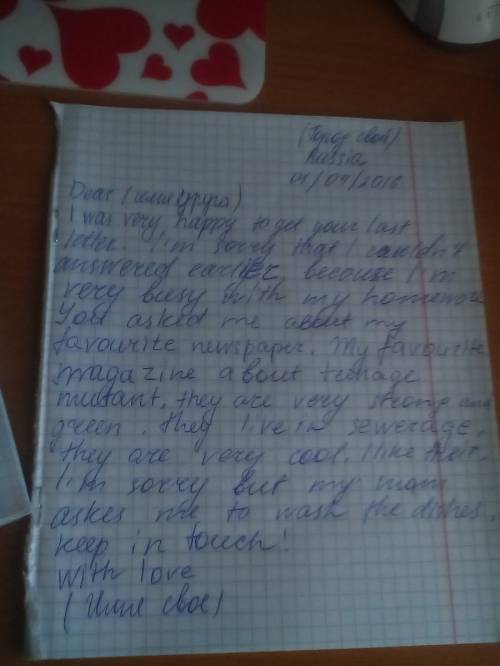 (Город свой)
Russia
04/04/2016
Dear (имя друга)
I was very happy to get your last
letter. I'm sorry that I couldn't
answered earlier, because I'm
very busy with my homework
You asked me about my
favourite newspaper. My favourite
magazine about teenage
mutant, they are very strong and
green. They live in sewerage.
they are very cool. I like their.
I'm sorry but my mom
askes me to wash the dishes.
keep in touch!
with love
(Имя свое)